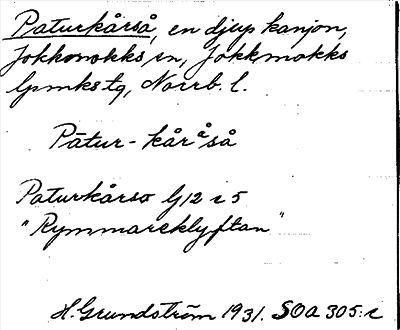 Paturkårså, en djup kanjon,
Jokkmokks sn, Jokkmokks
lpmks tg, Norrb. l.
Pātur-kårᵃ̊så
Paturkårso lj 12 i 5
"Rymmareklyftan"
H. Grundström 1931. SOA 305:c